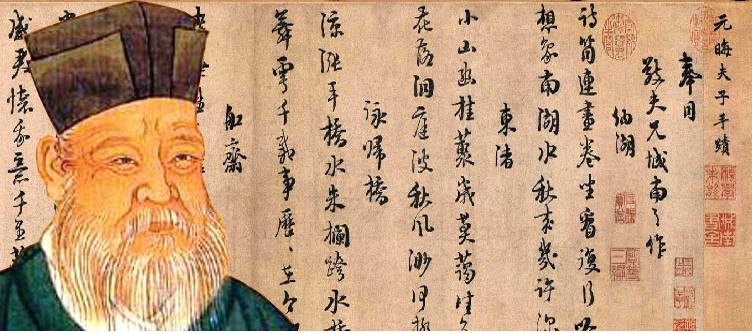 元晦夫子手蹟
奉同
敬夫兄城南之作
納湖
詩筒連畫卷坐看復行吟
想象南湖水秋來幾許深
東渚
小山幽桂叢歲莫藹佳
花落洞庭波秋風渺何極
詠歸橋
綠漲平橋水朱欄跨水橋
舞雩千載事歷〻在今
船齋
感君懷我意千里